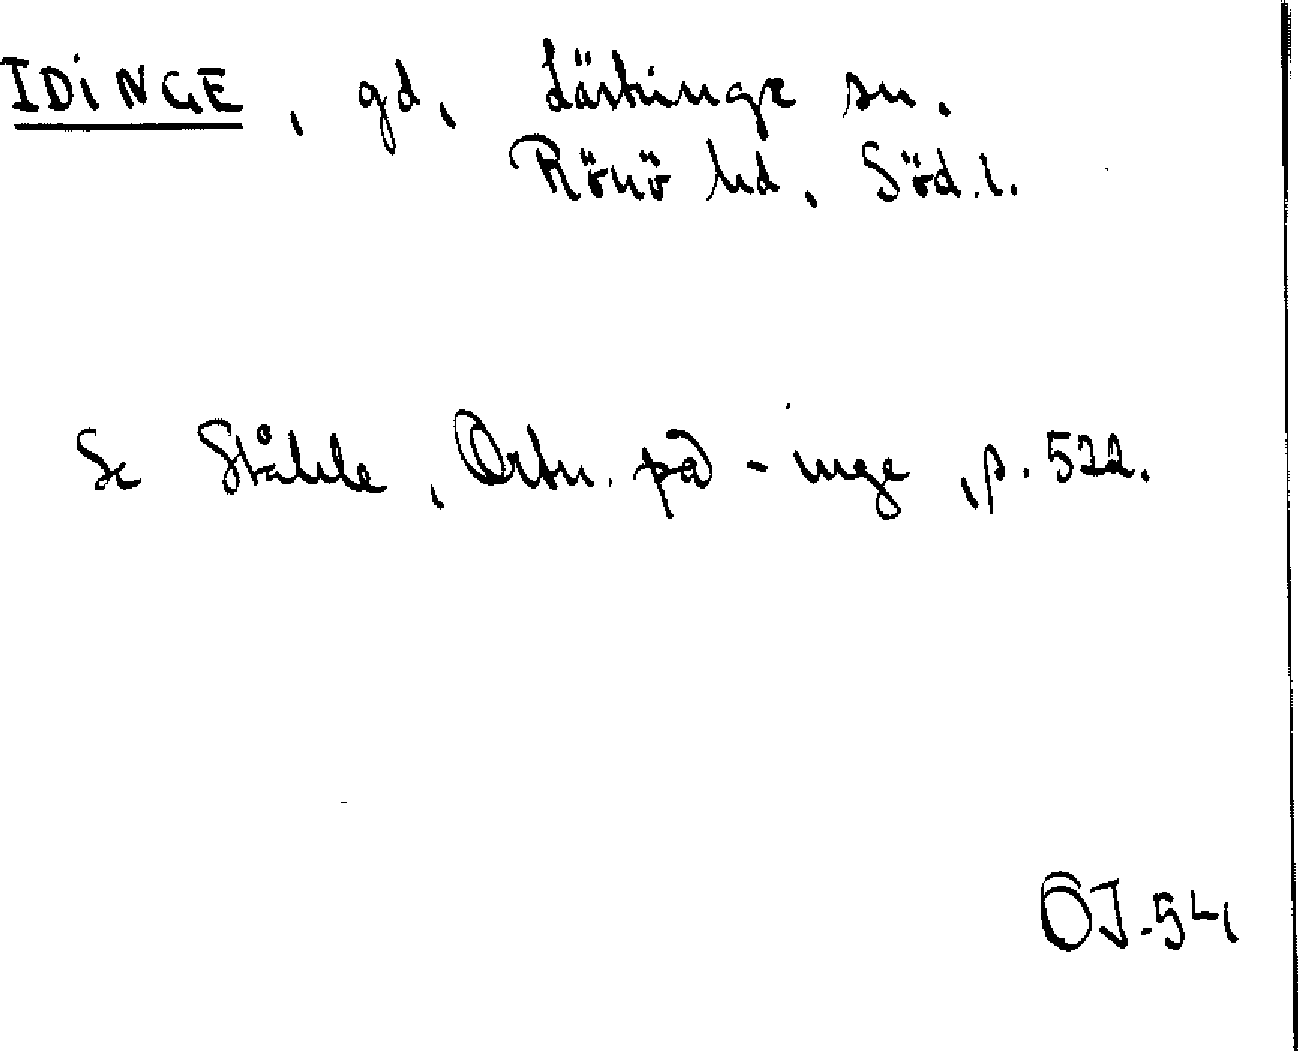 IDINGE, gd, Lästringe sn.
Rönö hd, Söd.l.
Se Ståhle, Ortn. på -inge, p. 522.
ÖJ-54